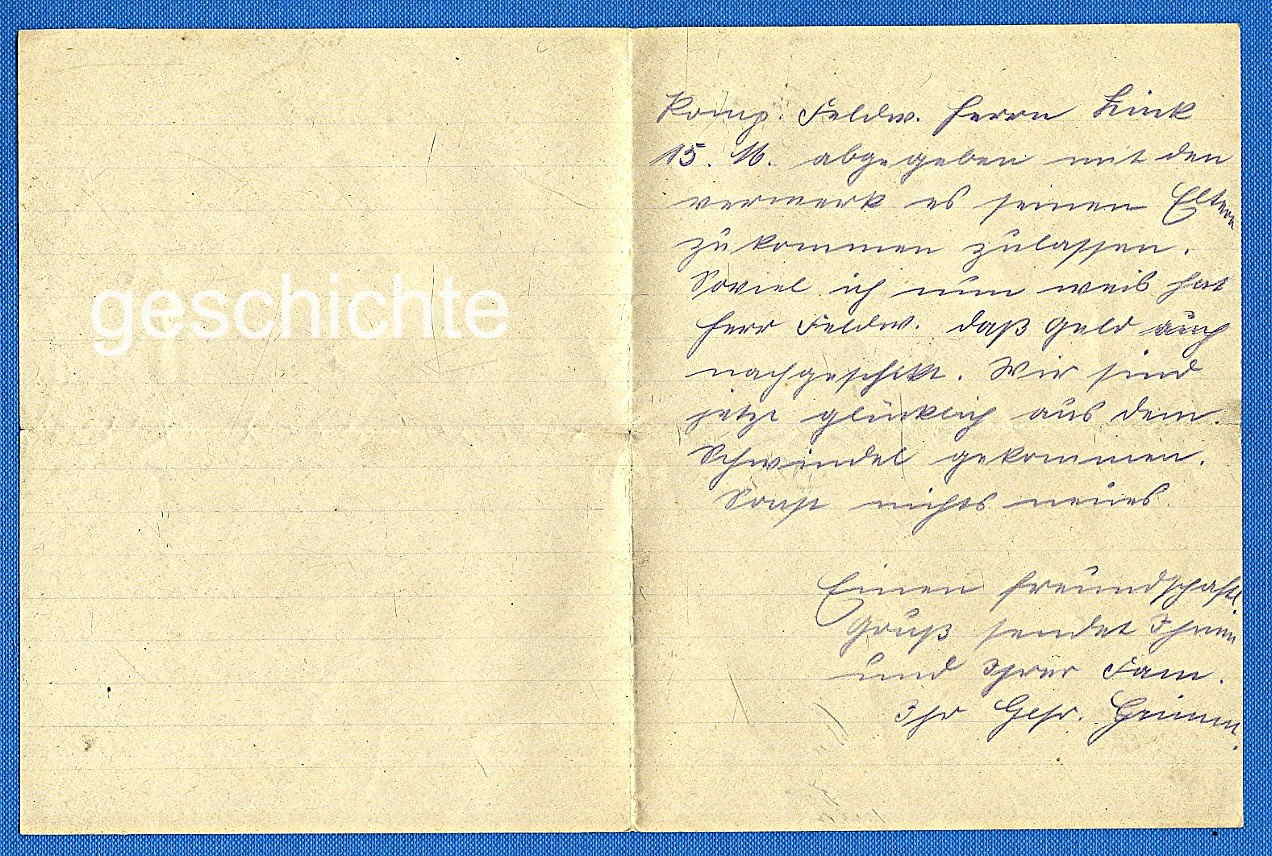 geschichte
Komp. Feldw. Herrn Link
15. M. abgegeben mit den
vermerk es seinen Eltern
zukommen zulassen.
Soviel ich nun weis hat
Herr Feldw. daß Geld auch
nachgeschikt. Wir sind
jetzt glücklich aus dem
Schwindel gekommen.
Sonst nichts neues.
Einen freundschaftl.
Gruß sendet Ihnen
und Ihrer Fam.
Ihr Gefr. Grimm.